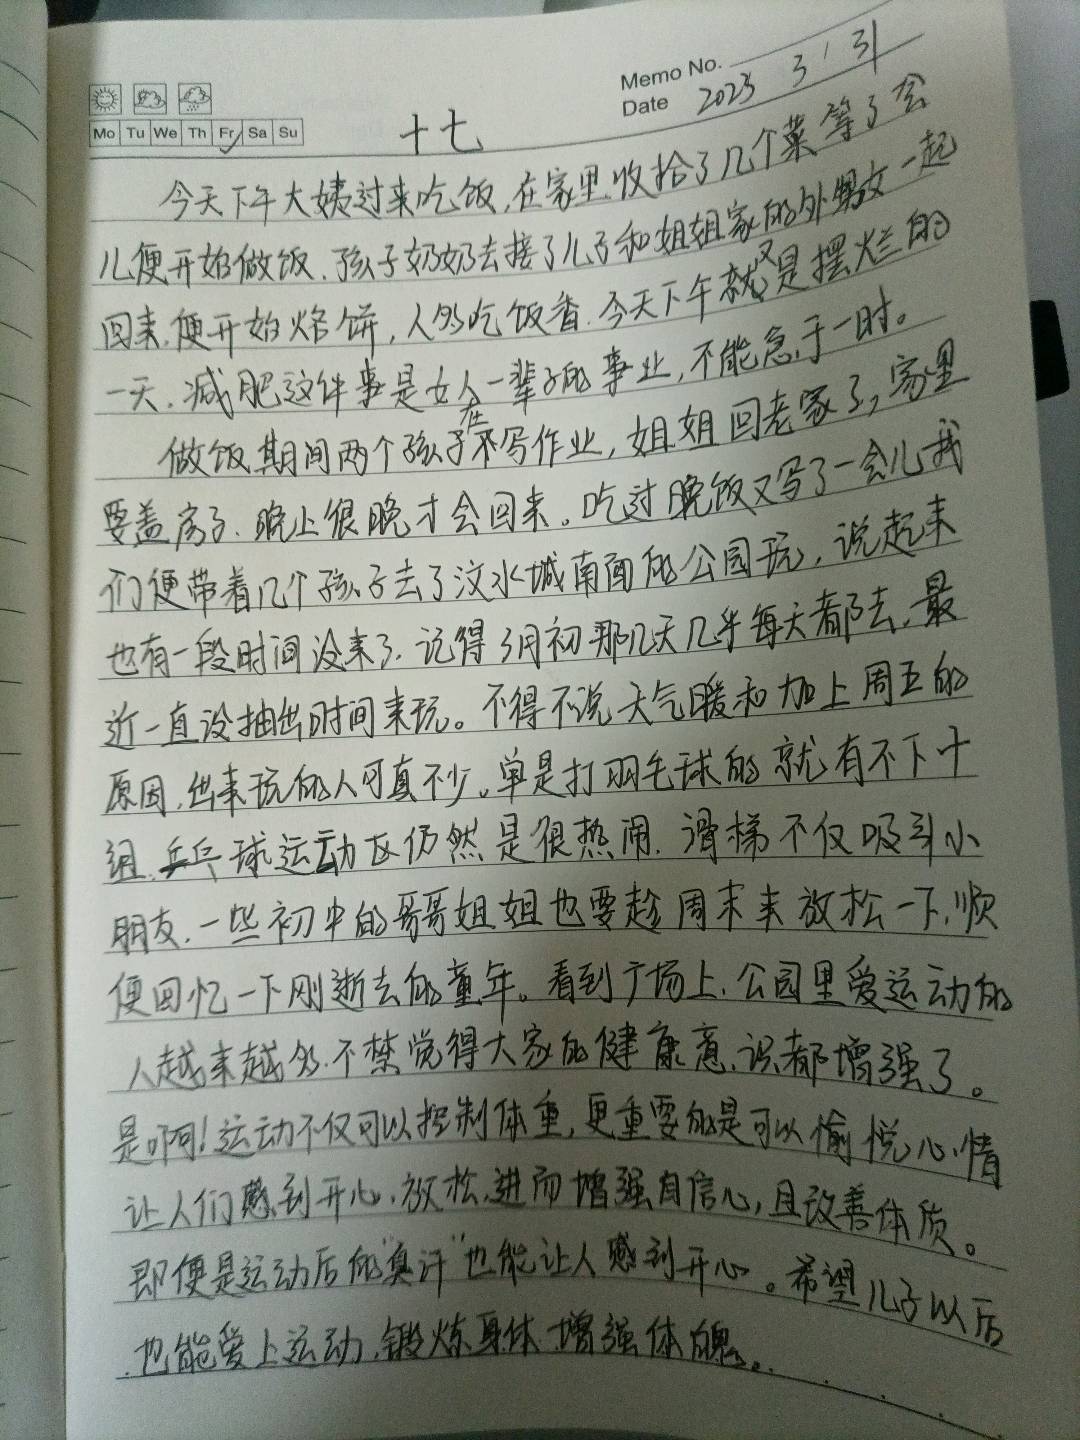 Memo No.
Date 2023 3 / 31
Mo Tu We Th Fr Sa Su
十七
今天下午大姨过来吃饭,在家里收拾了几个菜等了会
儿便开始做饭.孩子奶奶去接了儿子和姐姐家的外甥女一起
回来.便开始烙饼,人多吃饭香.今天下午就又是摆烂的
一天.减肥这件事是女人一辈子的事业,不能急于一时。
做饭期间两个孩子在写作业,姐姐回老家了,家里
要盖房子.晚上很晚才会回来。吃过晚饭又写了一会儿我
们便带着几个孩子去了汶水城南面的公园玩,说起来
也有一段时间没来了.记得3月初那几天几乎每天都去,最
近一直没抽出时间来玩。不得不说天气暖和加上周五的
原因,出来玩的人可真不少。单是打羽毛球的就有不下十
组,乒乓球运动区仍然是很热闹.滑梯不仅吸引小
朋友.一些初中的哥哥姐姐也要趁周末来放松一下,顺
便回忆一下刚逝去的童年。看到广场上.公园里爱运动的
人越来越多.不禁觉得大家的健康意识都增强了。
是啊!运动不仅可以控制体重,更重要的是可以愉悦心情
让人们感到开心.放松,进而增强自信心,且改善体质。
即便是运动后的"臭汗"也能让人感到开心。希望儿子以后
也能爱上运动.锻炼身体.增强体魄。